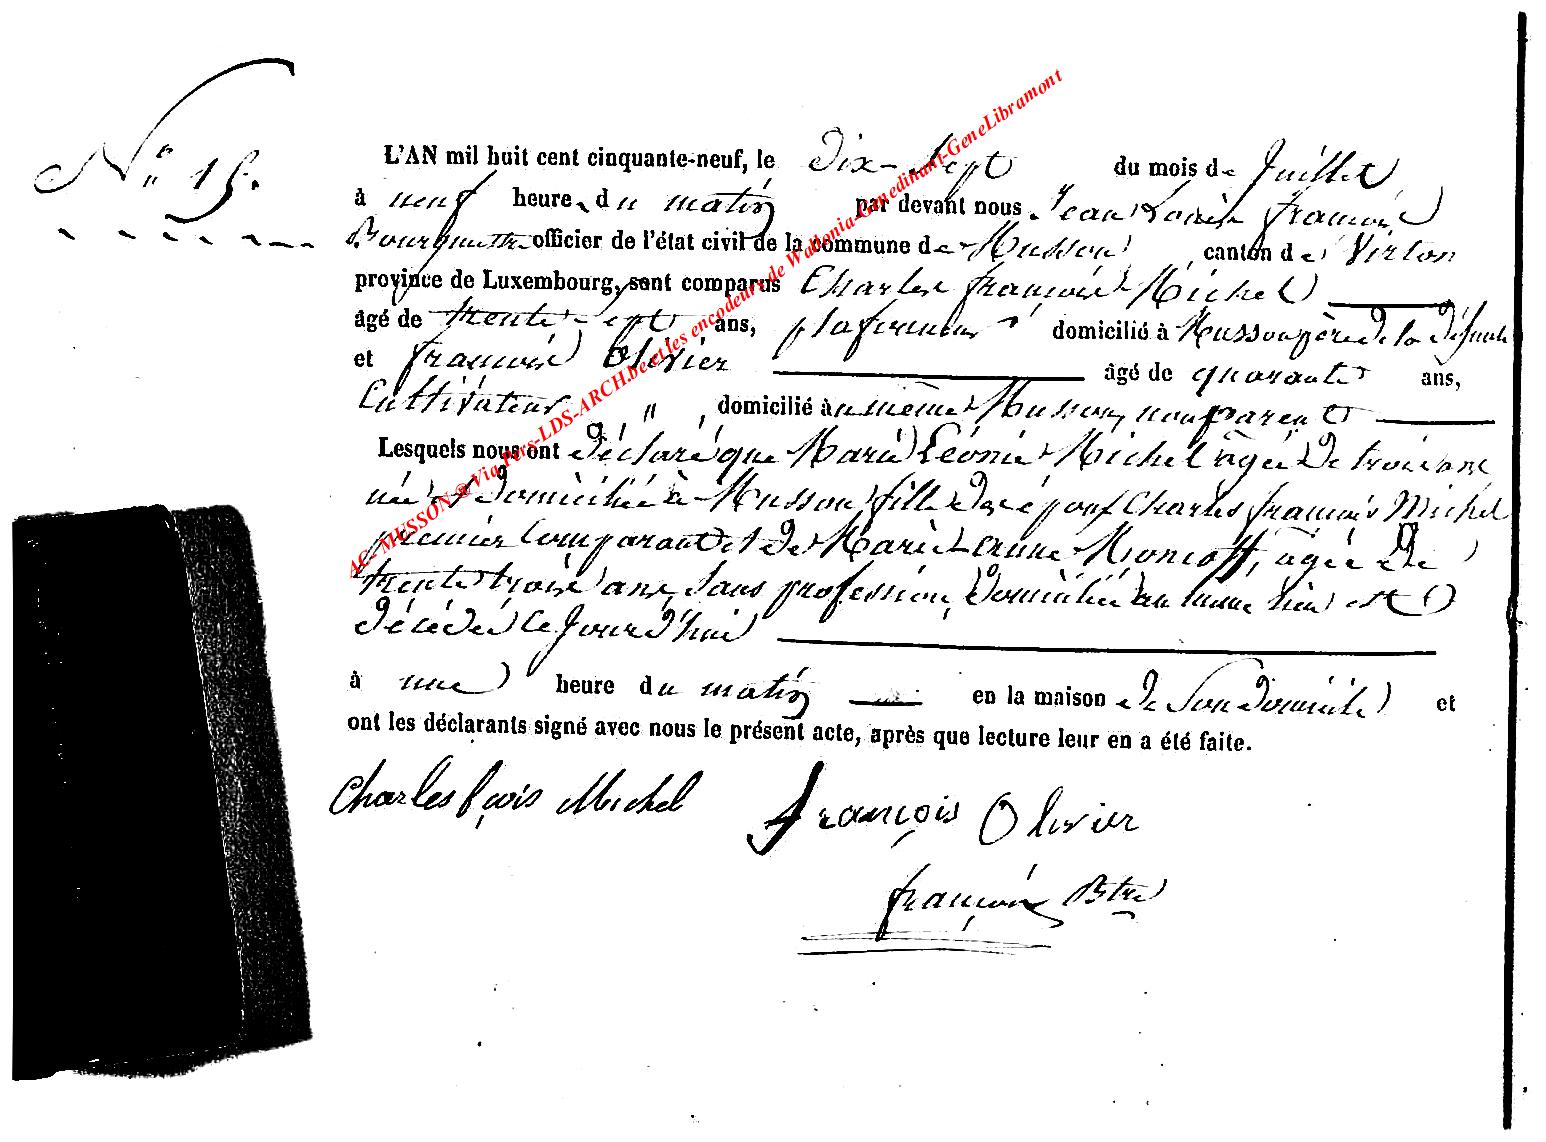 N° 15.
L'AN mil huit cent cinquante-neuf, le Dix-Sept du mois de Juillet
à neuf heures du matin par devant nous Jean Louis François
officier de l'état civil de la commune de Musson canton de Virton
province de Luxembourg, sont comparus Charles François Michel
âgé de trente-sept ans, plafonneur domicilié à Musson père de la défunte
et François Olivier âgé de quarante ans,
Cultivateur " , domicilié au même Musson, non parent
Lesquels nous ont déclaré que Marie Léonie Michel âgée de trois ans
née et domiciliée à Musson, fille de Charles François Michel
premier comparant et de Marie Anne âgée de
trente trois ans, sans profession, domiciliée au même lieu est
décédée ce jourd'hui
à une heure du matin en la maison de son domicile et
ont les déclarants signé avec nous le présent acte, après que lecture leur en a été faite.
Charles fçois Michel François Olivier
François Btre
AC-MUSSON @ Via Pers-LDS-ARCH.be et les encodeurs de Wallonia-Genedinant-GeneLibramont